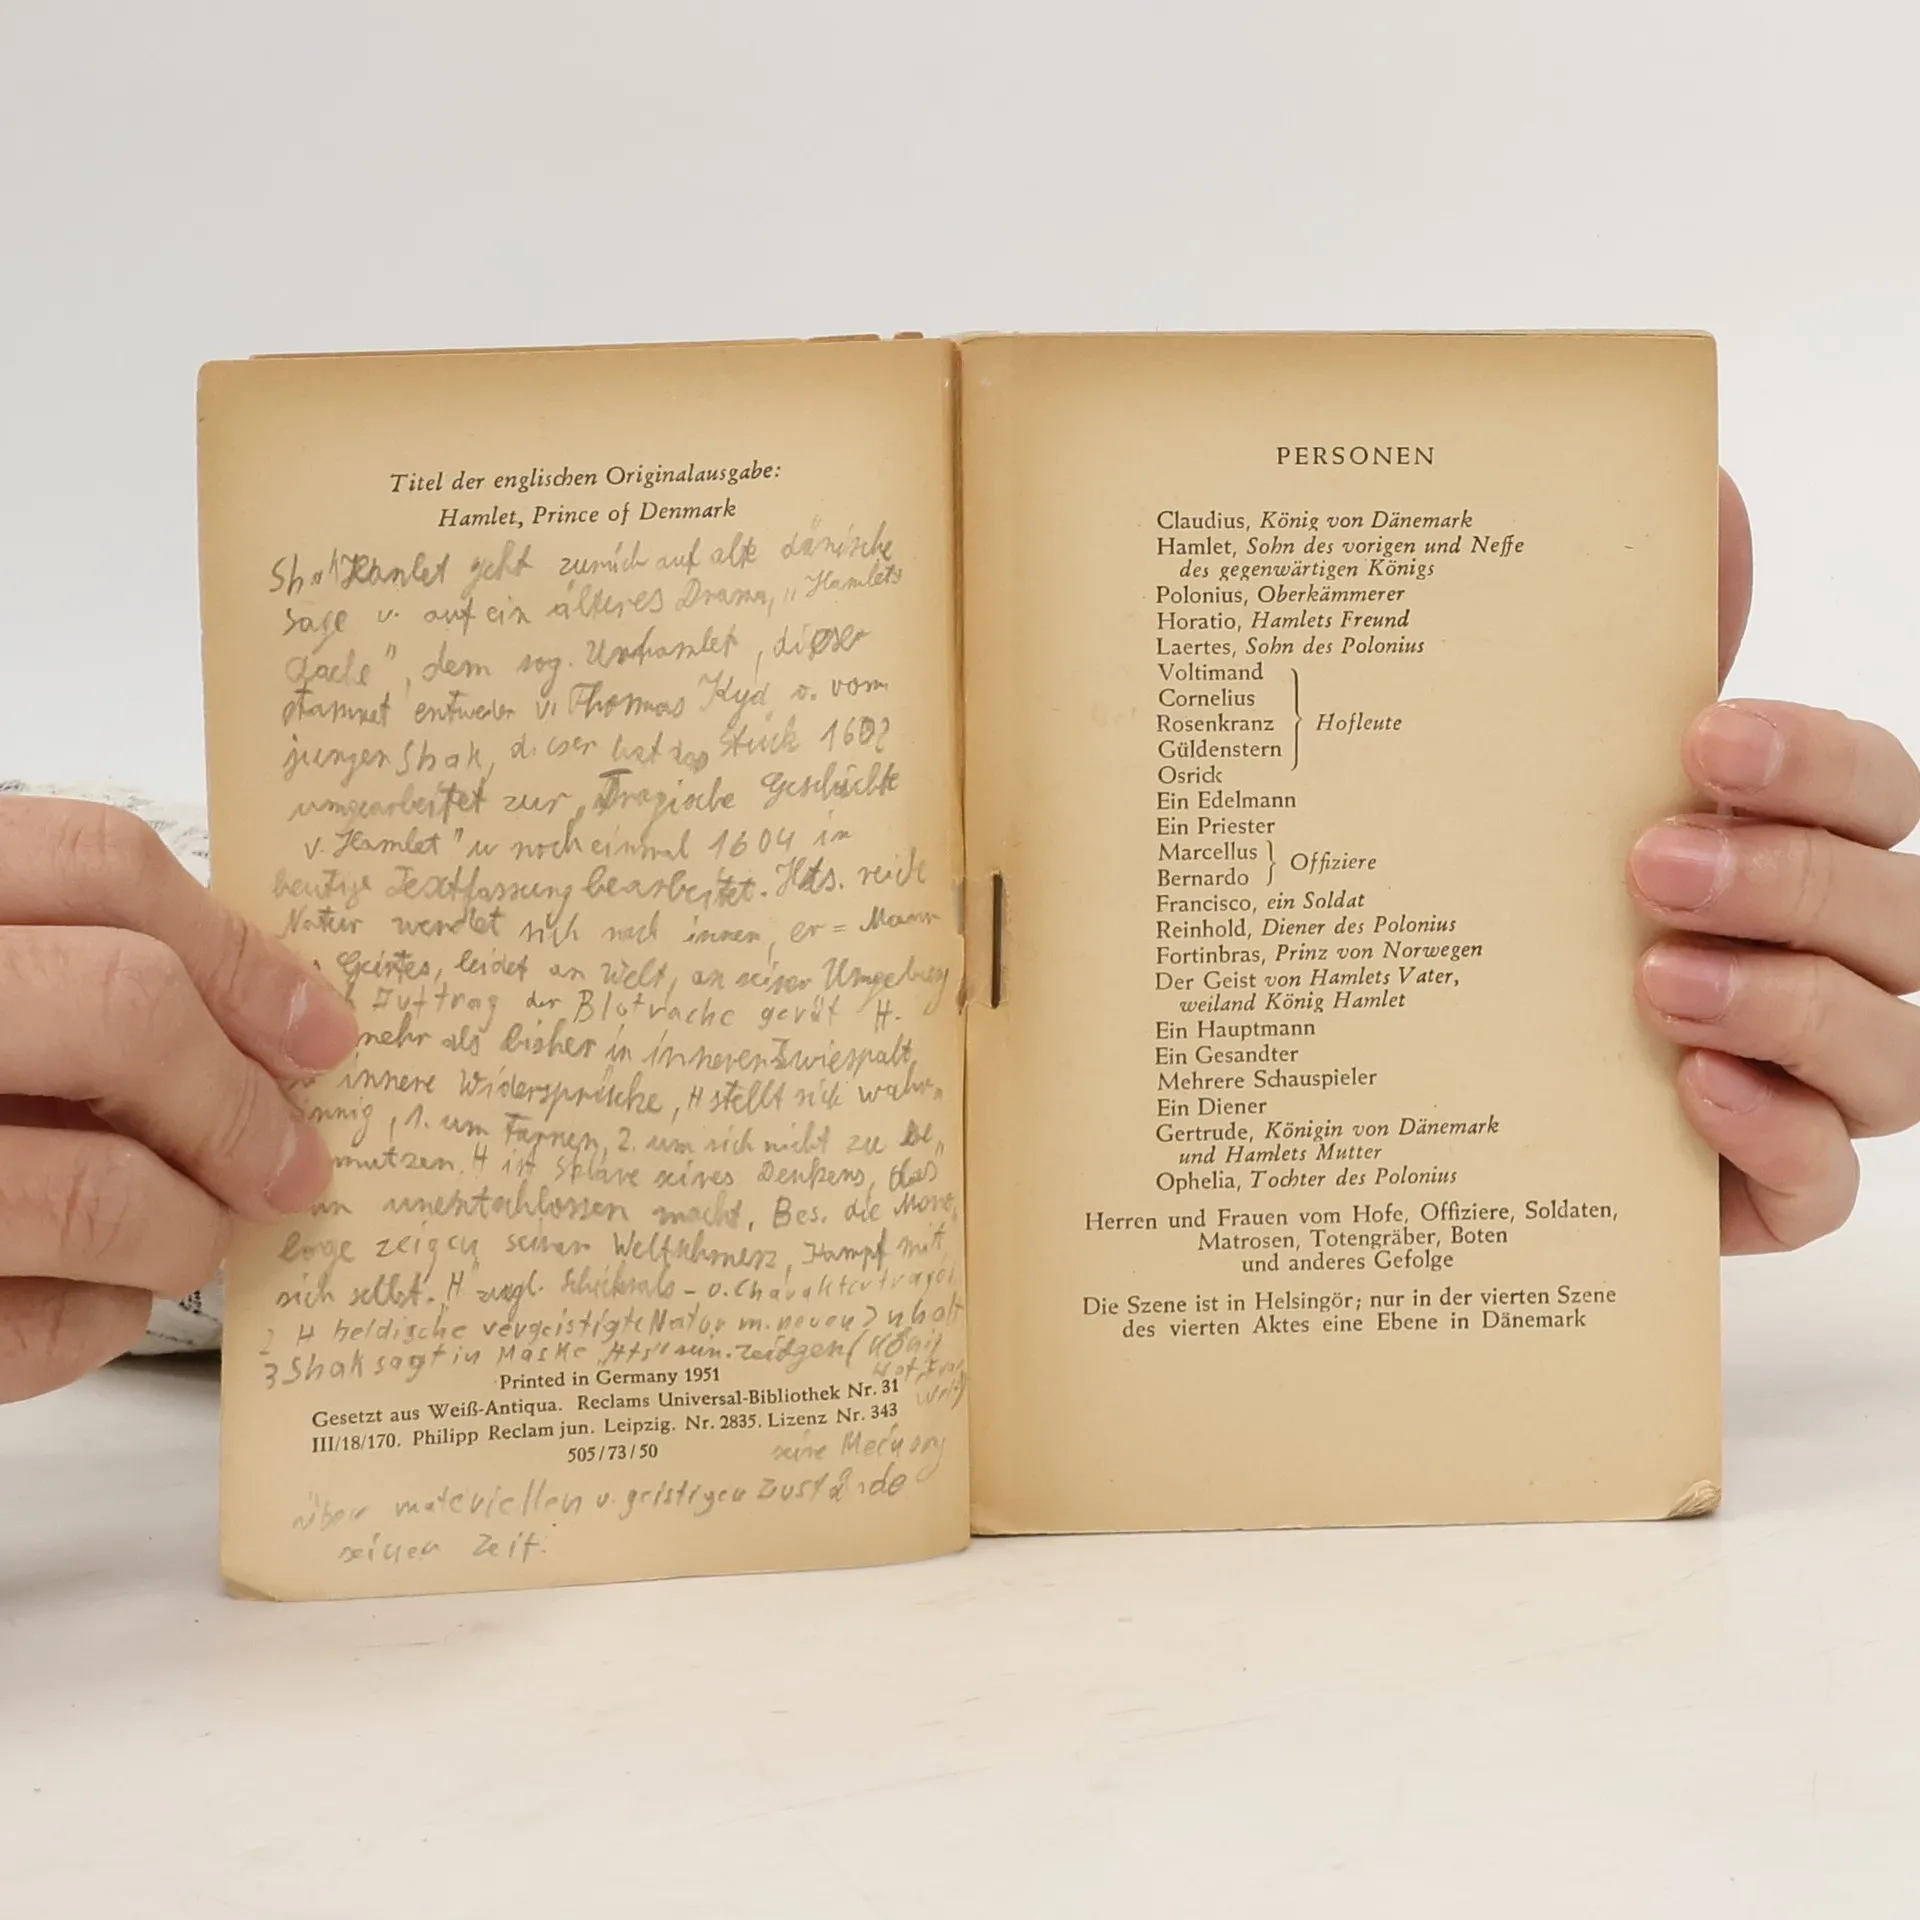 Titel der englischen Originalausgabe:
Hamlet, Prince of Denmark
Hamlet geht zurück auf alte dänische
Sage u. auf ein älteres Drama, „Hamlets
Rache", dem sog. Urhamlet, dieser
stammt entweder v. Thomas Kyd o. vom
jungen Shak, dieser hat das Stück 1602
umgearbeitet zur „Tragische Geschichte
v. Hamlet" u noch einmal 1604 in
heutige Textfassung bearbeitet. Hts. reiche
Natur wendet sich nach innen, er = Mann
Geistes, leidet an Welt, an seiner Umgebung
Auftrag der Blutrache gerät H.
mehr als bisher in inneren Zwiespalt,
innere Widersprüche, H stellt sich wahn„
sinnig, 1. um Tarnen, 2. um sich nicht zu be„
schmutzen. H ist Sklave seines Denkens, das
unentschlossen macht, Bes. die Mono„
loge zeigen seinen Weltschmerz, Kampf mit
sich selbst. H zugl. Schicksals - o. Charaktertragöd
2 H heldische vergeistigte Natur m. neuen Inhalt
3 Shak sagt in Maske „Hts" sein. Zeitgen (König
Printed in Germany 1951
Gesetzt aus Weiß-Antiqua. Reclams Universal-Bibliothek Nr. 31
III/18/170. Philipp Reclam jun. Leipzig. Nr. 2835. Lizenz Nr. 343
505/73/50
seine Meinung
über materiellen u. geistigen Zustände
seiner Zeit.
PERSONEN
Claudius, König von Dänemark
Hamlet, Sohn des vorigen und Neffe
des gegenwärtigen Königs
Polonius, Oberkämmerer
Horatio, Hamlets Freund
Laertes, Sohn des Polonius
Voltimand
Cornelius
Rosenkranz
Güldenstern
Hofleute
Osrick
Ein Edelmann
Ein Priester
Marcellus
Bernardo
Offiziere
Francisco, ein Soldat
Reinhold, Diener des Polonius
Fortinbras, Prinz von Norwegen
Der Geist von Hamlets Vater,
weiland König Hamlet
Ein Hauptmann
Ein Gesandter
Mehrere Schauspieler
Ein Diener
Gertrude, Königin von Dänemark
und Hamlets Mutter
Ophelia, Tochter des Polonius
Herren und Frauen vom Hofe, Offiziere, Soldaten,
Matrosen, Totengräber, Boten
und anderes Gefolge
Die Szene ist in Helsingör; nur in der vierten Szene
des vierten Aktes eine Ebene in Dänemark